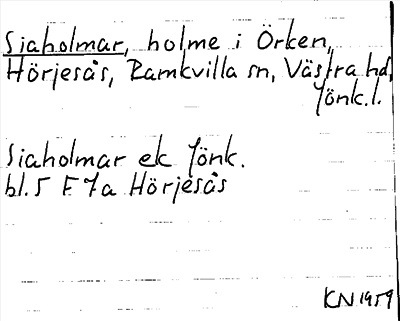 Siaholmar, holme i Örken,
Hörjesås, Ramkvilla sn, Västra hd,
Jönk.l.
Siaholmar ek Jönk.
bl. 5 F 7a Hörjesås
KN 1959